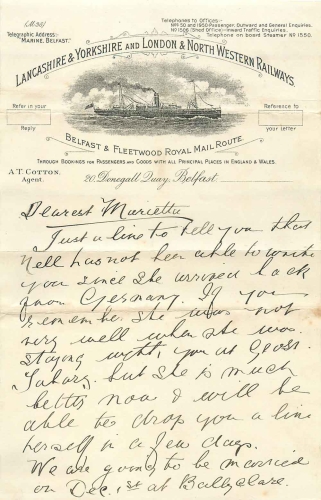 (M. 30)
Telegraphic Address:-
"MARINE, BELFAST."
Telephones to Offices:-
Nos 50 and 1950 Passenger, Outward and General Enquiries.
No 1506 (Shed Office)-Inward Traffic Enquiries.
Telephone on board Steamer No 1550.
LANCASHIRE & YORKSHIRE AND LONDON & NORTH WESTERN RAILWAYS
Refer in your
Reply
Reference to
your Letter
BELFAST & FLEETWOOD ROYAL MAIL ROUTE.
THROUGH BOOKINGS FOR PASSENGERS AND GOODS WITH ALL PRINCIPAL PLACES IN ENGLAND & WALES.
A.T. COTTON,
Agent.
20, Donegall Quay, Belfast
Dearest Marietta
Just a line to tell you that
Nell has not been able to write
you since she arrived back
from Germany. If you
remember she was not
very well when she was
staying with you at
but she is much
better now & will be
able to drop you a line
herself in a few days.
We are going to be married
on Dec. 1st at Ballyclare.